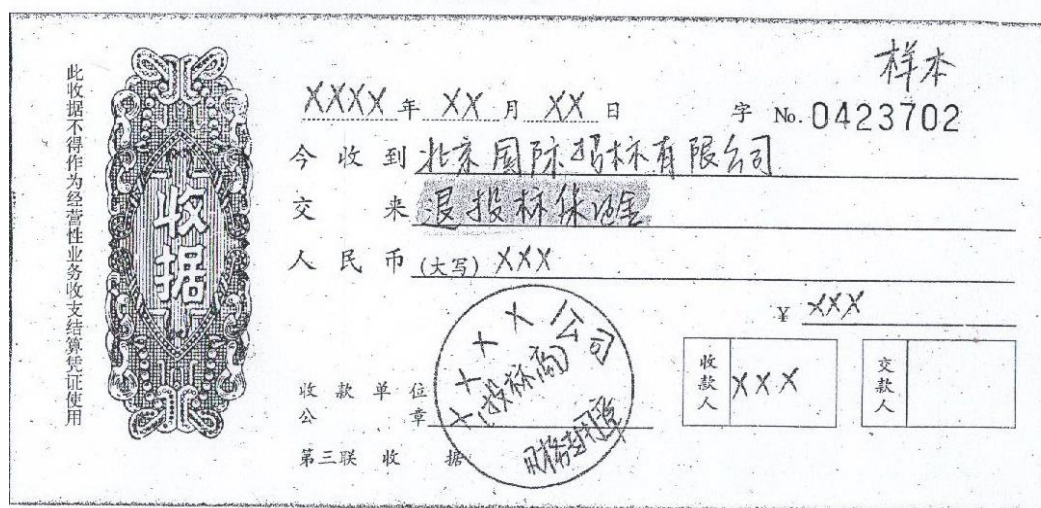 样本
此收据不得作为经营性业务收支结算凭证使用
收据
XXXX 年 XX 月 XX 日 字 No. 0423702
今收到 北京国际招标有限公司
交来 退投标保证金
人民币 (大写) XXX
¥ XXX
收款单位
公章
XXXX公司
(投标商)
财务专用章
收款人 XXX
交款人
第三联 收据